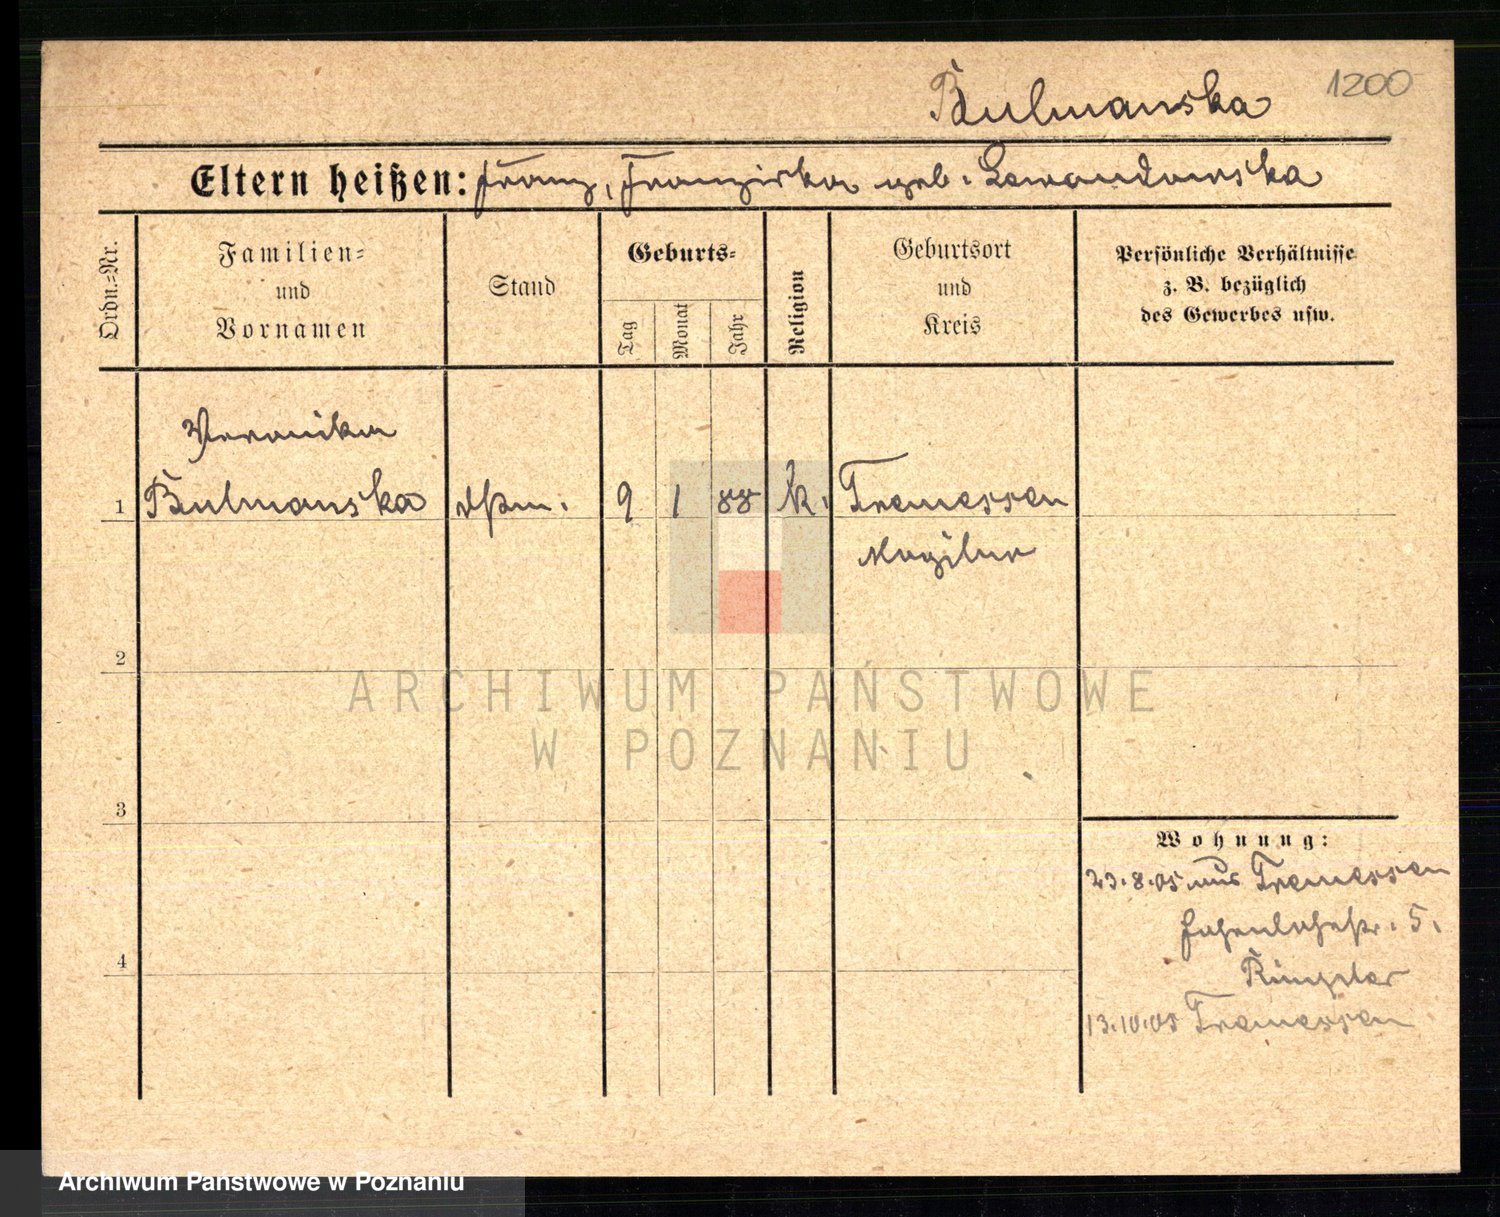 Bulmanska 1200
Eltern heißen: Franz, Franziska geb. Lewandowska
Ordn.-Nr.
Familien-
und
Vornamen
Stand
Geburts-
Tag
Monat
Jahr
Religion
Geburtsort
und
Kreis
Persönliche Verhältnisse
z. B. bezüglich
des Gewerbes usw.
Veronika
1 Bulmanska 9 1 88 k. Tremessen
Mogilno
2
3
4
ARCHIWUM PAŃSTWOWE
W POZNANIU
Wohnung:
23.8.05 aus Tremessen
Hohenlohestr. 5.
13.10.05 Tremessen
Archiwum Państwowe w Poznaniu